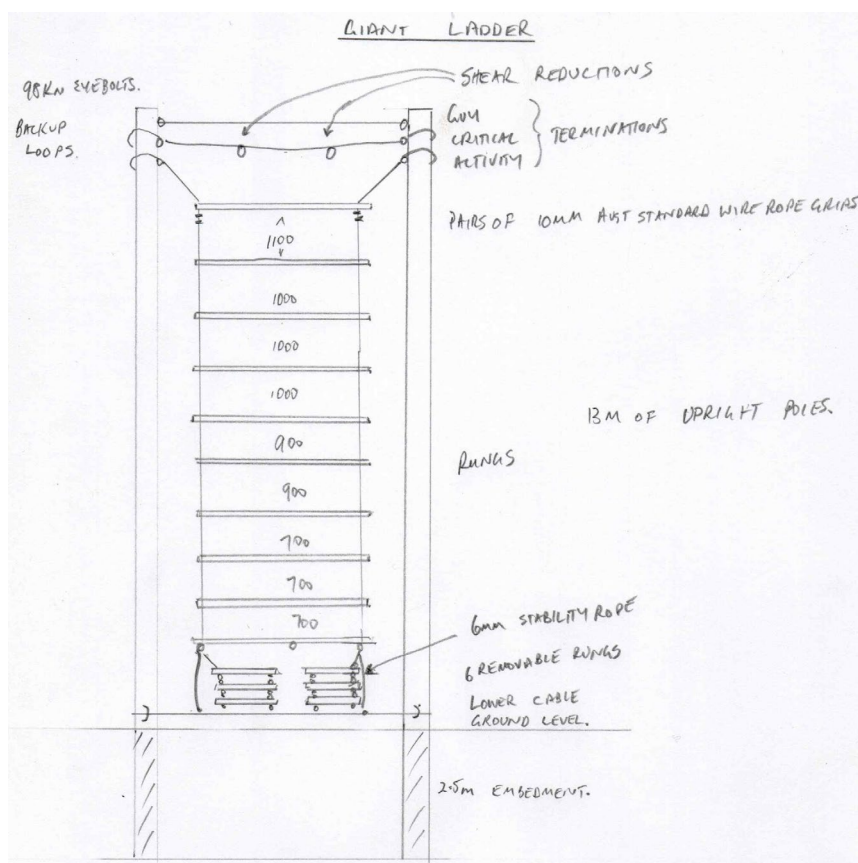 GIANT LADDER
98KN EYEBOLTS.
BACKUP
LOOPS.
SHEAR REDUCTIONS
GUY
CRITICAL
ACTIVITY
TERMINATIONS
PAIRS OF 10MM AUST STANDARD WIRE ROPE GRIPS
1100
1000
1000
1000
900
900
700
700
700
13M OF UPRIGHT POLES.
RUNGS
6MM STABILITY ROPE
6 REMOVABLE RUNGS
LOWER CABLE
GROUND LEVEL.
2.5M EMBEDMENT.